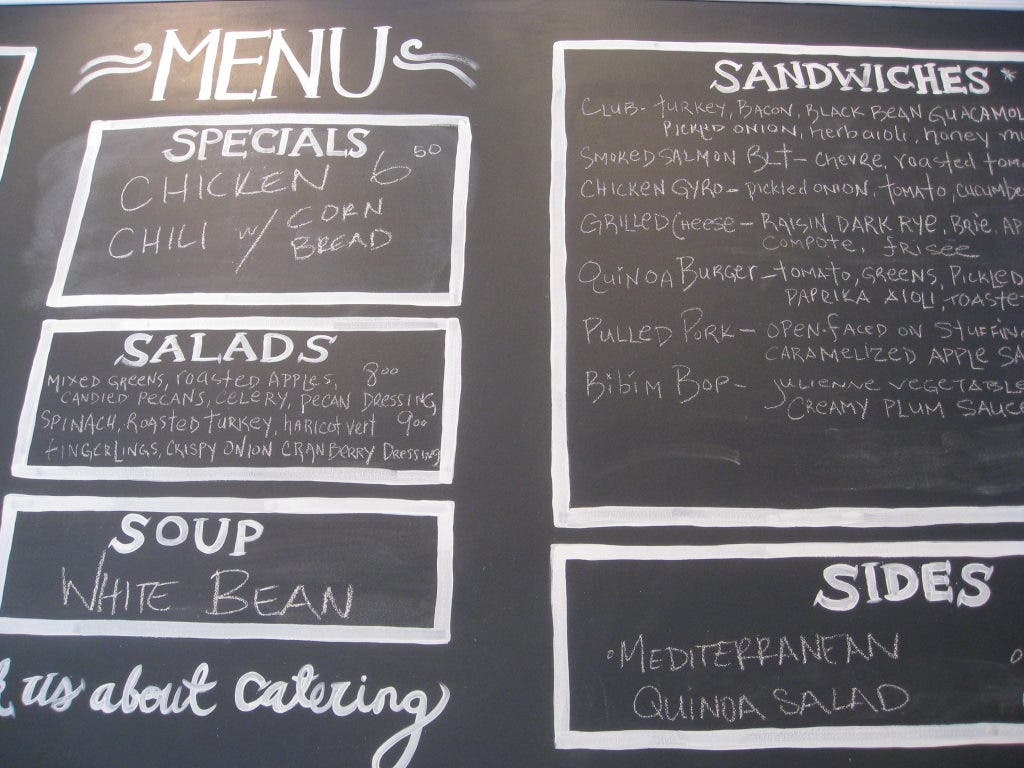 MENU
SPECIALS
CHICKEN 6 50
CHILI w/ CORN
BREAD
SALADS
MIXED GREENS, roasted APPLES, 8 00
CANDIED PECANS, CELERY, PECAN DRESSING
SPINACH, ROASTED TURKEY, haricot vert 9 00
FINGERLINGS, CRISPY ONION CRANBERRY DRESSING
SOUP
WHITE BEAN
us about catering
SANDWICHES *
CLUB- TURKEY, BACON, BLACK BEAN GUACAMOL
PICKLED ONION, herb aioli, honey mu
SMOKED SALMON BLT- CHEVRE, roasted toma
CHICKEN GYRO- pickled onion, tomato, cucumbe
GRILLED CHEESE- RAISIN DARK RYE, BRIE, AP
COMPOTE, frisée
QUINOA BURGER- tomato, GREENS, PICKLED
PAPRIKA AIOLI, TOASTE
PULLED PORK- OPEN-FACED ON STUFFING
CARAMELIZED APPLE SA
BIBIM BOP- JULIENNE VEGETABLE
CREAMY PLUM SAUCE
SIDES
MEDITERRANEAN
QUINOA SALAD